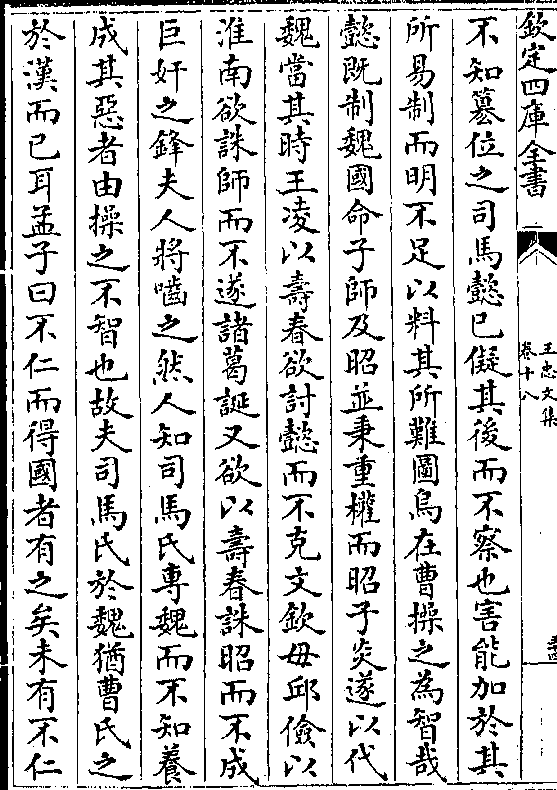 欽定四庫全書
王忠文集
卷十八
不知篡位之司馬懿已儗其後而不察也害能加於其
所易制而明不足以料其所難圖烏在曹操之為智哉
懿既制魏國命子師及昭並秉重權而昭子炎遂以代
魏當其時王凌以壽春欲討懿而不克文欽毋邱儉以
淮南欲誅師而不遂諸葛誕又欲以壽春誅昭而不成
巨奸之鋒夫人將嚙之然人知司馬氏專魏而不知養
成其惡者由操之不智也故夫司馬氏於魏猶曹氏之
於漢而已耳孟子曰不仁而得國者有之矣未有不仁